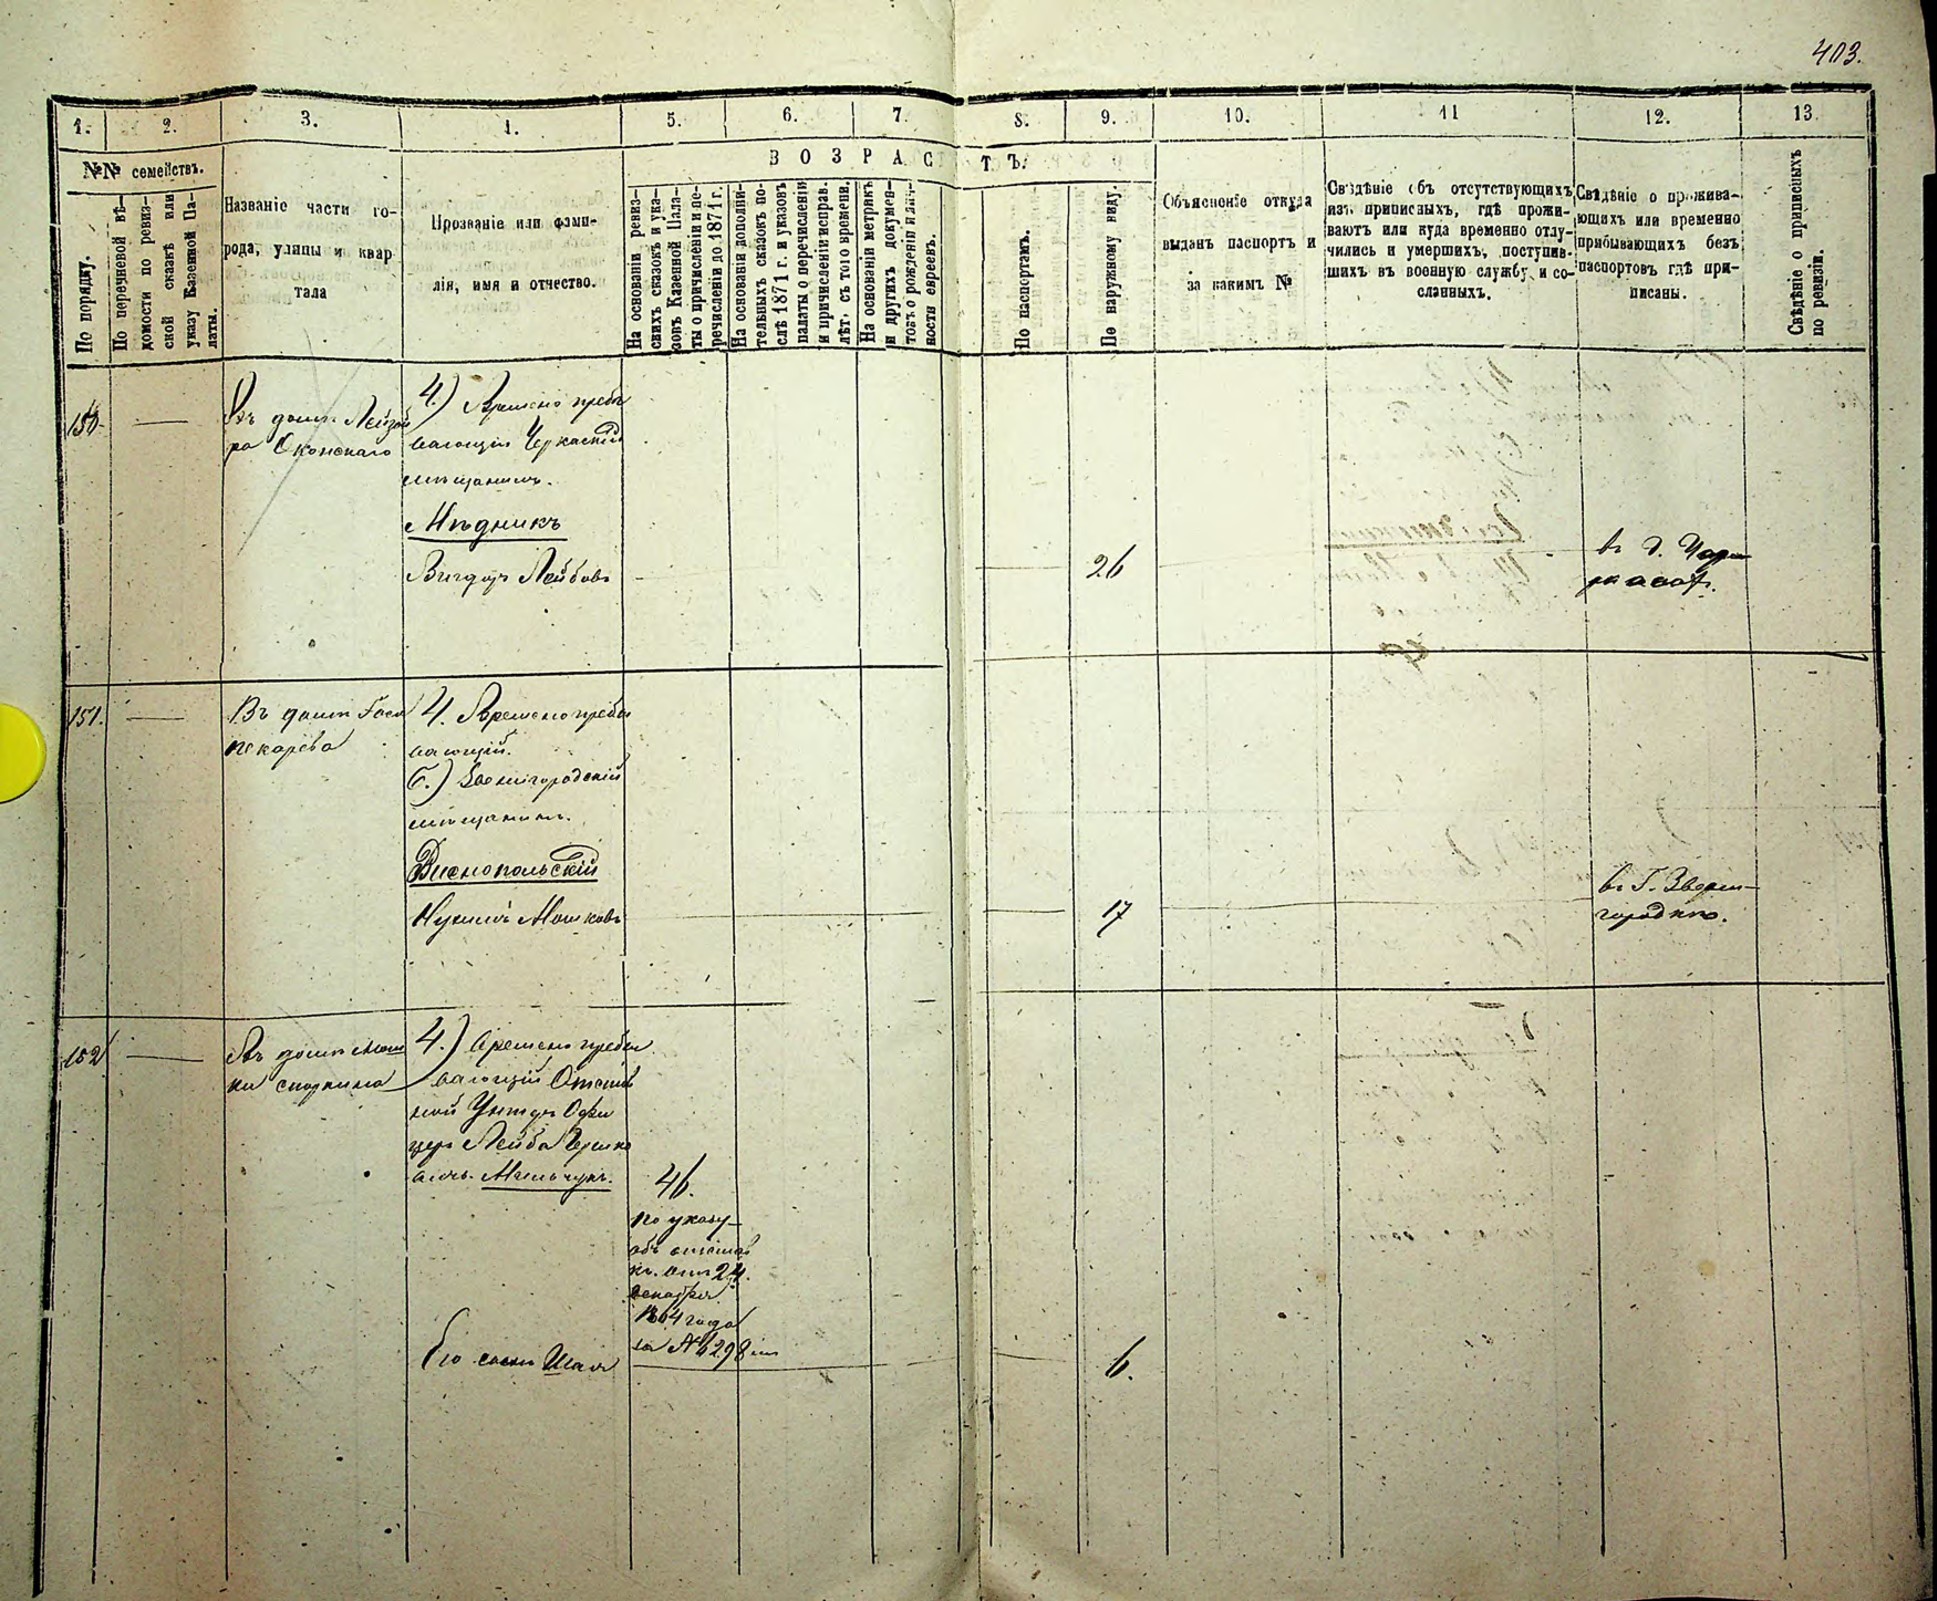 403.
1.
2.
3.
4.
5.
6.
7.
8.
9.
10.
11
12.
13.
№№ семействъ.
По порядку.
По перечневой вѣ-
домости по ревиз-
ской сказкѣ или
указу Казенной Па-
латы.
Названіе части го-
рода, улицы и квар
тала
Прозваніе или фами-
лія, имя и отчество.
ВОЗРАСТЪ.
На основаніи ревиз-
скихъ сказокъ и ука-
зовъ Казенной Пала-
ты о причисленіи и пе-
речисленіи до 1871 г.
На основаніи дополни-
тельныхъ сказокъ по-
слѣ 1871 г. и указовъ
палаты о перечисленіи
и причисленіи исправ.
лѣт. съ того времени.
На основаніи метрикъ
и другихъ докумен-
товъ о рожденіи и лич-
ности евреевъ.
По паспортамъ.
По наружному виду.
Объясненіе откуда
выданъ паспортъ и
за какимъ №
Свѣдѣніе объ отсутствующихъ
изъ приписныхъ, гдѣ прожи-
ваютъ или куда временно отлу-
чились и умершихъ, поступив-
шихъ въ военную службу и со-
сланныхъ.
Свѣдѣніе о прожива-
ющихъ или временно
прибывающихъ безъ
паспортовъ гдѣ при-
писаны.
Свѣдѣніе о приписныхъ
по ревизіи.
150.
Въ домѣ Лейзо
ра Сконскаго
4.) Временно пребы
вающій Черкаскій
мѣщанинъ.
Мѣдникъ
Вигдоръ Лейбовъ
26
151.
Въ домѣ
пекарева
4. Временно пребы
вающій.
б.) Звенигородскій
мѣщанинъ.
Виснопольскій
Нухимъ Мошковъ
17
въ Г. Звени-
городкѣ.
152
Въ домѣ Мош
ки
4.) Временно пребы
вающій Отстав
ной Унтеръ Офи
церъ Лейба Гершко
вичъ
46.
по указу
объ отстав
кѣ. отъ 24.
декабря
1864 года
за №
Его сынъ Шая
6.